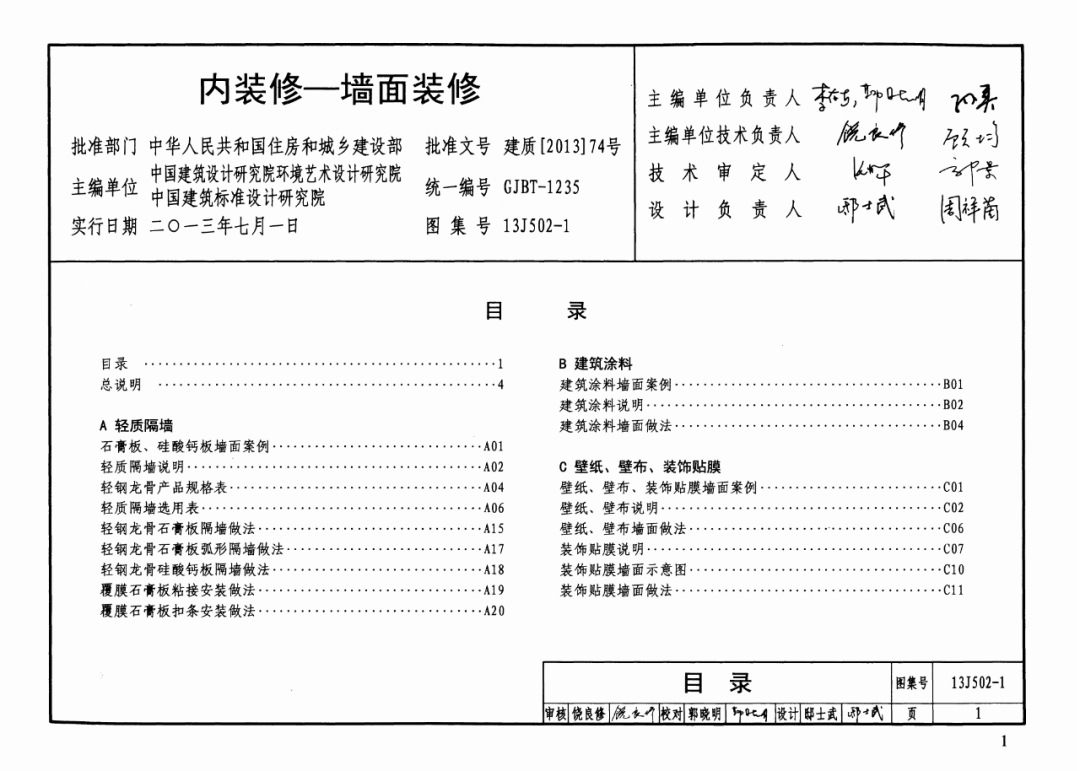 内装修—墙面装修
批准部门 中华人民共和国住房和城乡建设部 批准文号 建质[2013]74号
主编单位 中国建筑设计研究院环境艺术设计研究院
中国建筑标准设计研究院
统一编号 GJBT-1235
实行日期 二〇一三年七月一日 图集号 13J502-1
主编单位负责人
主编单位技术负责人 饶良修
技术审定人
设计负责人 邸士武 周祥茵
目 录
目录 ······1
总说明 ······4
A 轻质隔墙
石膏板、硅酸钙板墙面案例······A01
轻质隔墙说明······A02
轻钢龙骨产品规格表······A04
轻质隔墙选用表······A06
轻钢龙骨石膏板隔墙做法······A15
轻钢龙骨石膏板弧形隔墙做法······A17
轻钢龙骨硅酸钙板隔墙做法······A18
覆膜石膏板粘接安装做法······A19
覆膜石膏板扣条安装做法······A20
B 建筑涂料
建筑涂料墙面案例······B01
建筑涂料说明······B02
建筑涂料墙面做法······B04
C 壁纸、壁布、装饰贴膜
壁纸、壁布、装饰贴膜墙面案例······C01
壁纸、壁布说明······C02
壁纸、壁布墙面做法······C06
装饰贴膜说明······C07
装饰贴膜墙面示意图······C10
装饰贴膜墙面做法······C11
目 录 图集号 13J502-1
审核 饶良修 饶良修 校对 郭晓明 设计 邸士武 邸士武 页 1
1